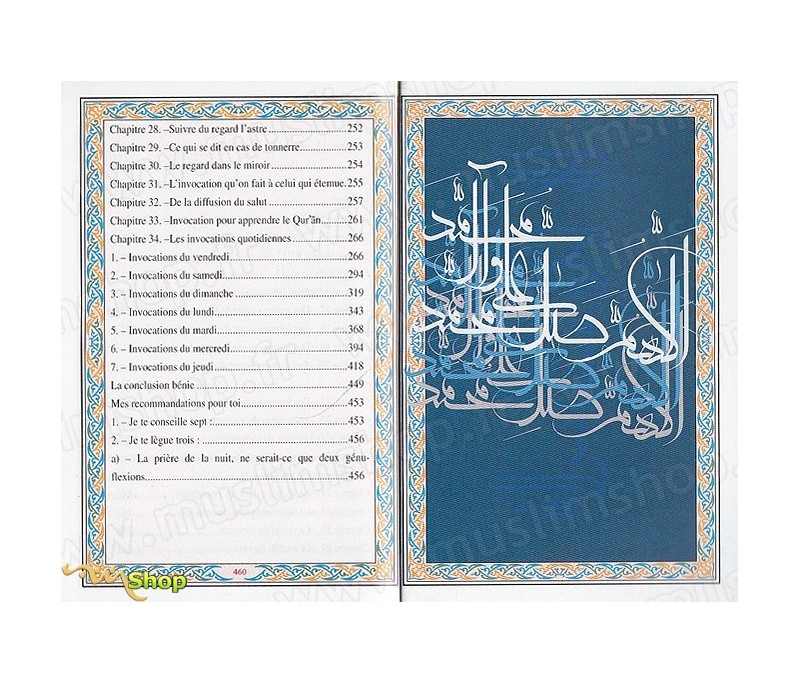 Chapitre 28. –Suivre du regard l’astre..............................252
Chapitre 29. –Ce qui se dit en cas de tonnerre...................253
Chapitre 30. –Le regard dans le miroir.............................254
Chapitre 31. –L’invocation qu’on fait à celui qui éternue.255
Chapitre 32. –De la diffusion du salut..............................257
Chapitre 33. –Invocation pour apprendre le Qur’ān.........261
Chapitre 34. –Les invocations quotidiennes.....................266
1. – Invocations du vendredi..........................................266
2. – Invocations du samedi............................................294
3. – Invocations du dimanche........................................319
4. – Invocations du lundi...............................................343
5. – Invocations du mardi..............................................368
6. – Invocations du mercredi.........................................394
7. – Invocations du jeudi...............................................418
La conclusion bénie.....................................................449
Mes recommandations pour toi.....................................453
1. – Je te conseille sept :...............................................453
2. – Je te lègue trois : ...................................................456
a) – La prière de la nuit, ne serait-ce que deux génu-
flexions.......................................................................456
460
اللهم صل على محمد وآل محمد
Shop
www.muslimshop.fr